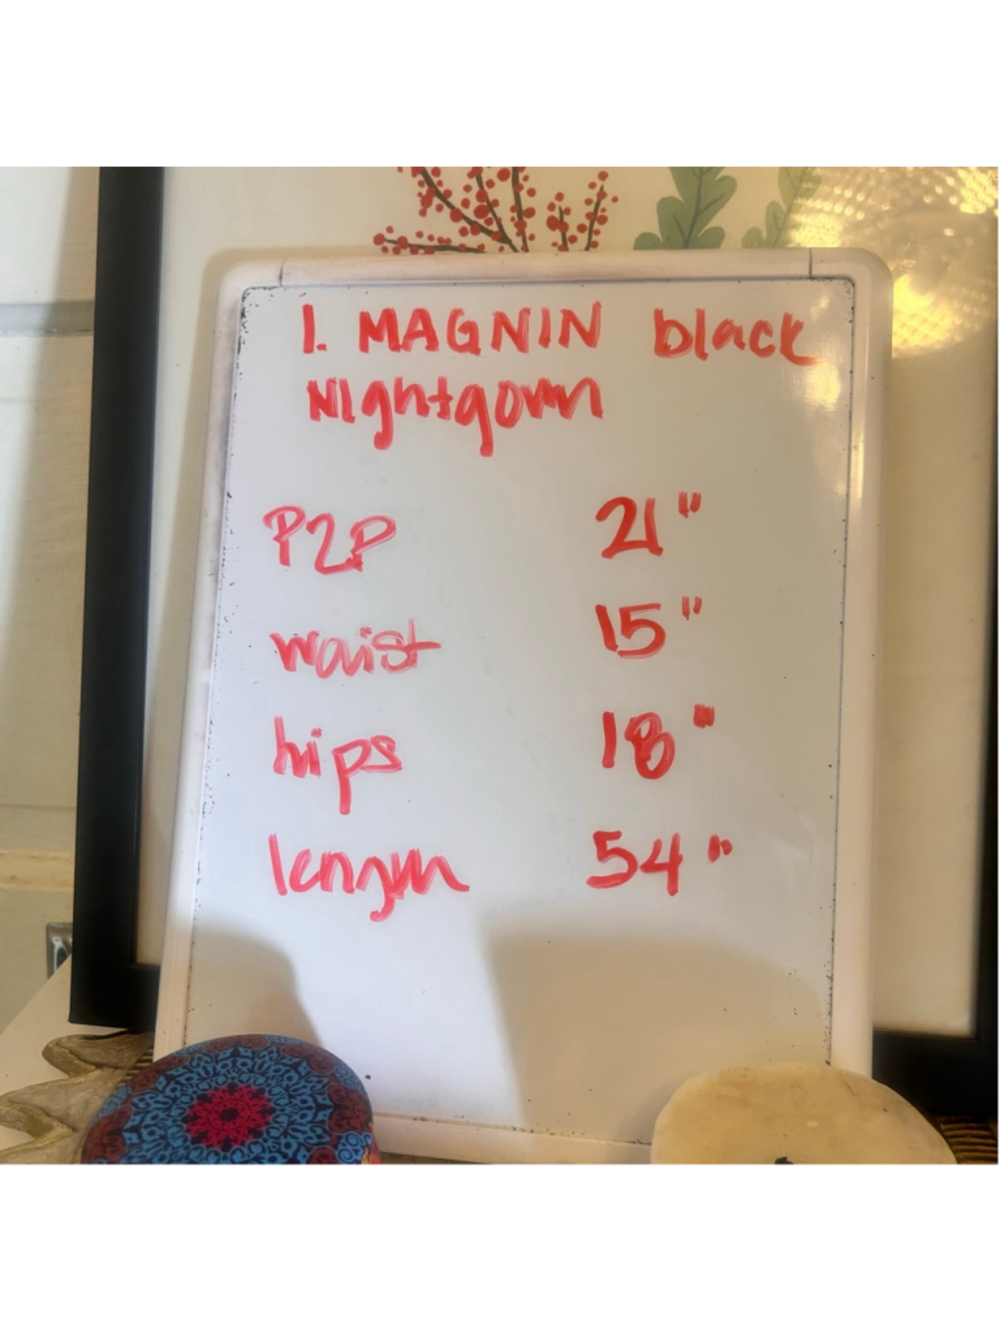 I. MAGNIN black
Nightgown
P2P 21"
waist 15"
hips 18"
length 54"